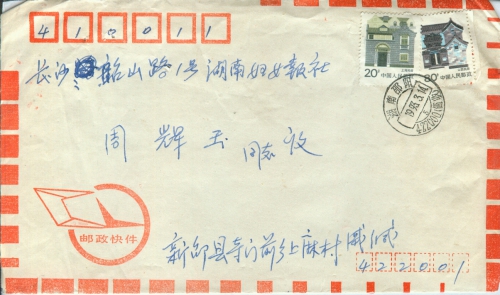 410011
长沙韶山路1号湖南妇女报社
20分 中国人民邮政
80分 中国人民邮政
周辉玉 同志收
邮政快件
新邵县寺门前乡麻村
422001